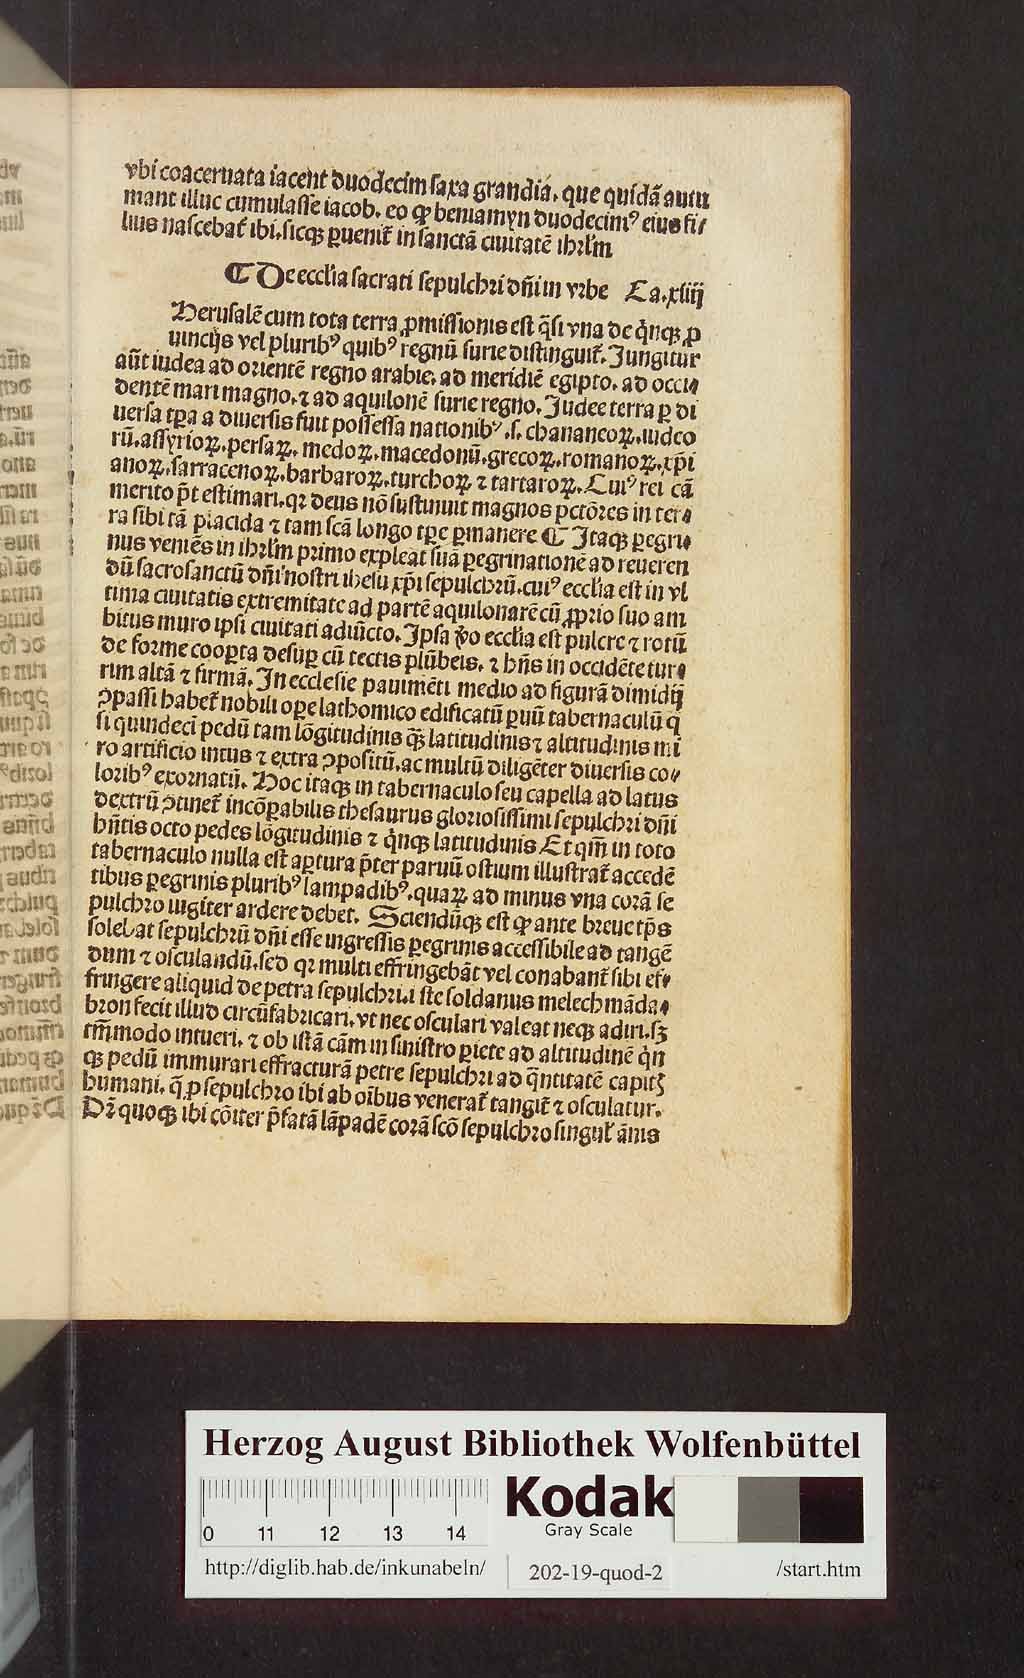 vbi coaceruata iacent duodecim saxa grandia. que quidã autu
mant illuc cumulasse iacob. eo ꝙ beniamyn duodecimꝰ eius fi⸗
lius nascebat᷑ ibi. sicqꝫ ꝑuenit᷑ in sanctã ciuitatẽ ihrl̃m
¶ De ecclĩa sacrati sepulchri dñi in vrbe Ca. xliij
Herusalẽ cum tota terra ꝓmissionis est q̃si vna de q̇nqꝫ ꝓ
uincijs vel pluribꝰ quibꝰ regnũ surie distinguit᷑. Jungitur
aũt iudea ad orientẽ regno arabie. ad meridiẽ egipto. ad occi⸗
dentẽ mari magno. ⁊ ad aquilonẽ surie regno. Judee terra ꝑ di
uersa tꝑa a diuersis fuit possessa nationibꝰ .s. chananeoꝝ. iudeo
rũ. assyrioꝝ. persaꝝ. medoꝝ. macedonũ. grecoꝝ. romanoꝝ. xp̃i
anoꝝ. sarracenoꝝ. barbaroꝝ. turchoꝝ ⁊ tartaroꝝ. Cuiꝰ rei cã
merito p̃t estimari. qꝛ deus nõ sustinuit magnos pctõres in ter⸗
ra sibi tã placida ⁊ tam scã longo tꝑe ꝑmanere ¶ Itaqꝫ ꝑegri⸗
nus veniẽs in ihrl̃m primo expleat suã ꝑegrinationẽ ad reueren
dũ sacrosanctũ dñi nostri ihesu xp̃i sepulchrũ. cuiꝰ ecclĩa est in vl
tima ciuitatis extremitate ad partẽ aquilonarẽ cũ ꝓprio suo am
bitus muro ipsi ciuitati adiũcto. Ipsa ꝟo ecclĩa est pulcre ⁊ rotũ
de forme cooꝑta desuꝑ cũ tectis plũbeis. ⁊ hñs in occidẽte tur⸗
rim altã ⁊ firmã. In ecclesie pauimẽti medio ad figurã dimidij
ꝯpassi habet᷑ nobili oꝑe lathomico edificatũ ꝑuũ tabernaculũ q̃
si quindecĩ pedũ tam lõgitudinis qꝫ̃ latitudinis ⁊ altitudinis mi
ro artificio intus ⁊ extra ꝯpositũ. ac multũ diligẽter diuersis co⸗
loribꝰ exornatũ. Hoc itaqꝫ in tabernaculo seu capella ad latus
dextrũ ꝯtinet᷑ incõꝑabilis thesaurus gloriosissimi sepulchri dñi
hñtis octo pedes lõgitudinis ⁊ q̇nqꝫ latitudinis Et qm̃ in toto
tabernaculo nulla est aꝑtura p̃ter paruũ ostium illustrat᷑ accedẽ
tibus ꝑegrinis pluribꝰ lampadibꝰ. quaꝝ ad minus vna corã se
pulchro iugiter ardere debet. Sciendũqꝫ est ꝙ ante breue tp̃s
solebat sepulchrũ dñi esse ingressis ꝑegrinis accessibile ad tangẽ
dum ⁊ osculandũ. sed qꝛ multi effringebãt vel conabant᷑ sibi ef⸗
fringere aliquid de petra sepulchri. iste soldanus melechmãda⸗
bron fecit illud circũfabricari. vt nec osculari valeat neqꝫ adiri. sꝫ
tm̃modo intueri. ⁊ ob istã cãm in sinistro ꝑiete ad altitudinẽ q̇n
qꝫ pedũ immurari effracturã petre sepulchri ad q̃ntitatẽ capitꝭ
humani. q̃ ꝓ sepulchro ibi ab oĩbus venerat᷑ tangit᷑ ⁊ osculatur.
Dr̃ quoqꝫ ibi cõiter p̃fatã lãpadẽ corã scõ sepulchro singul᷑ ãnis
Herzog August Bibliothek Wolfenbüttel
0 11 12 13 14
Kodak
Gray Scale
http://diglib.hab.de/inkunabeln/ 202-19-quod-2 /start.htm